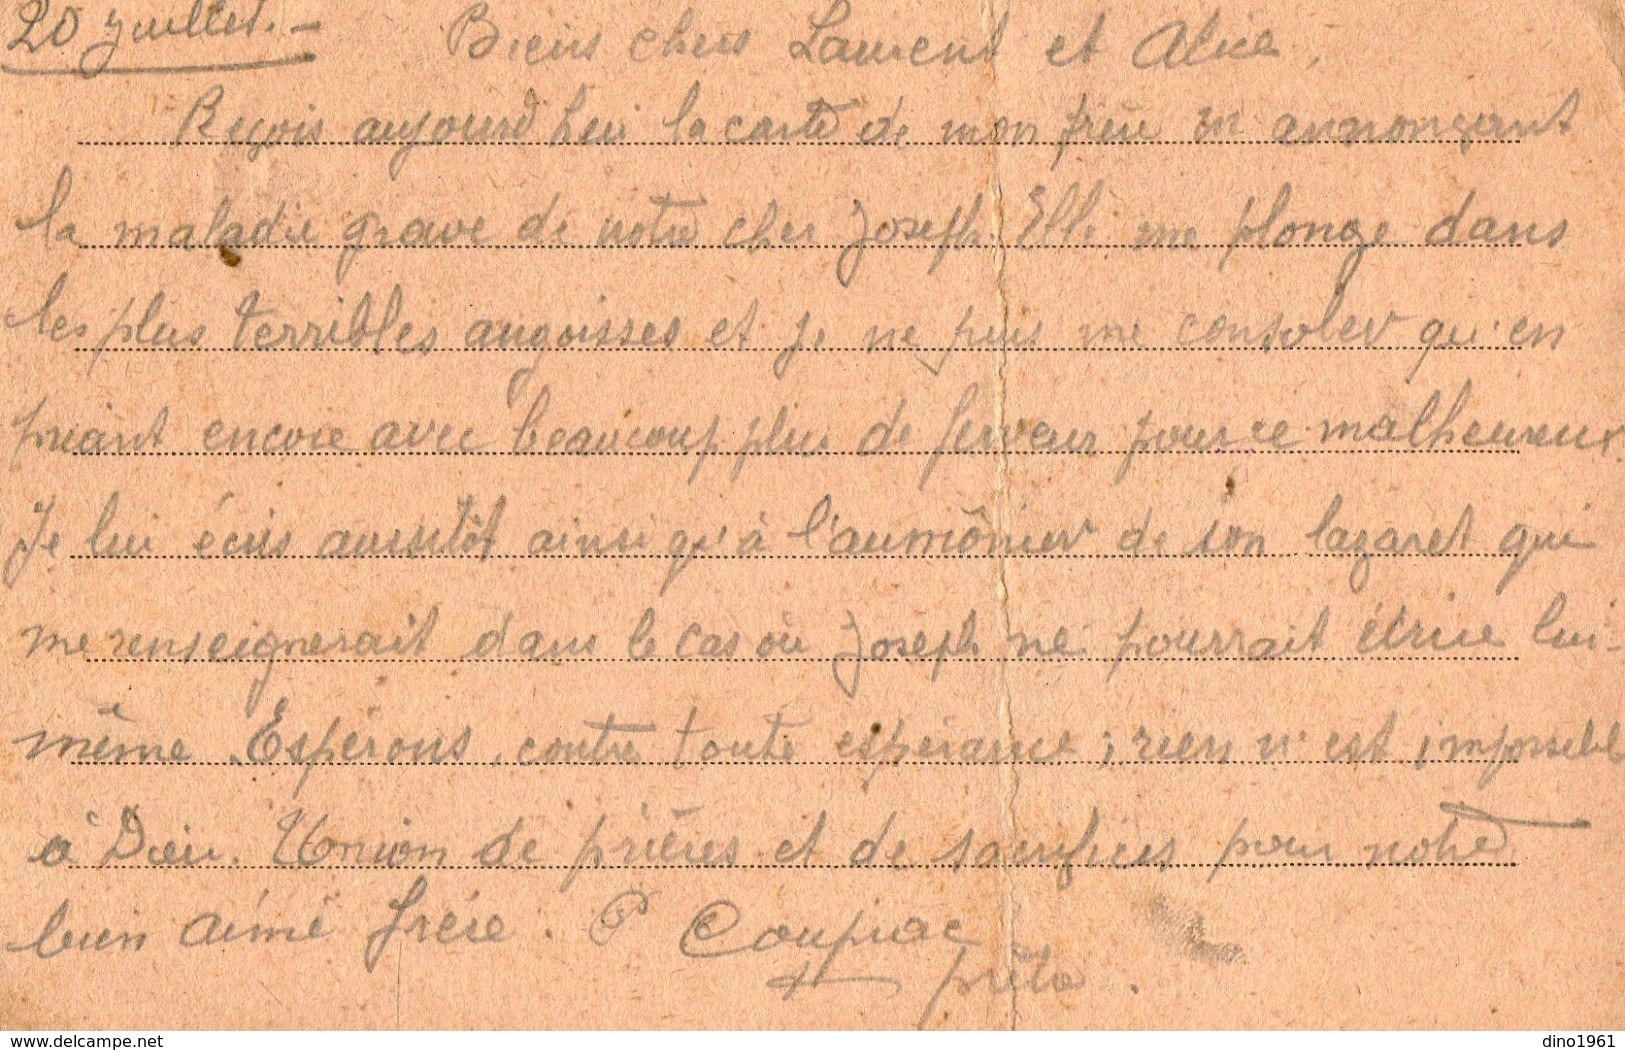 20 juillet. -
Biens chers Laurent et Alice,
Reçois aujourd'hui la carte de mon frère m'annonçant
la maladie grave de notre cher Joseph. Elle me plonge dans
les plus terribles angoisses et je ne puis me consoler qu'en
priant encore avec beaucoup plus de ferveur pour ce malheureux.
Je lui écris aussitôt ainsi qu'à l'aumônier de son lazaret qui
me renseignerait dans le cas où Joseph ne pourrait écrire lui-
même. Espérons, contre toute espérance ; rien n'est impossible
à Dieu. Union de prières et de sacrifices pour notre
bien aimé frère. P Coupiac
prêtre.
www.delcampe.net
dino1961